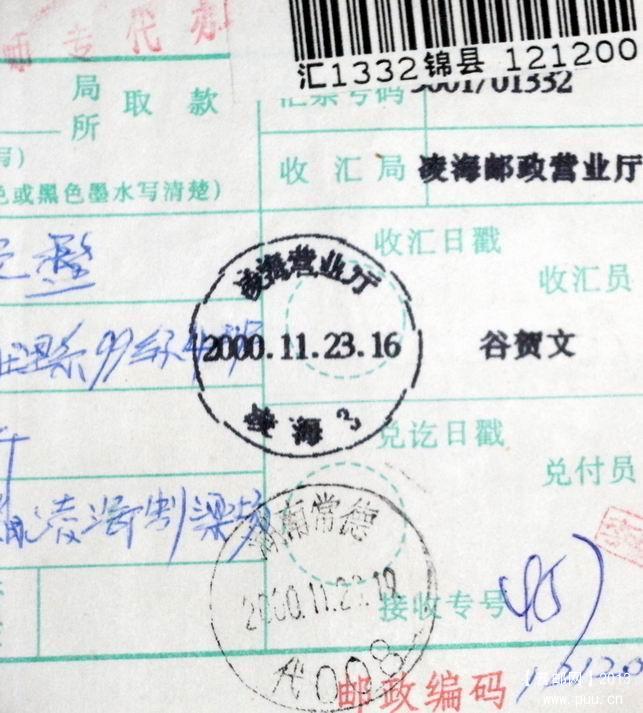 邮专代办
汇1332锦县 121200
汇票号码 5001/01332
局所 取款
写)
色或黑色墨水写清楚)
收汇局 凌海邮政营业厅
收汇日戳
收汇员
谷贺文
凌海营业厅
2000.11.23.16
凌海 3
兑讫日戳
兑付员
99级
凌海制梁场
湖南常德
代008
接收专号
邮政编码
【上邮网】2013
www.puu.cn